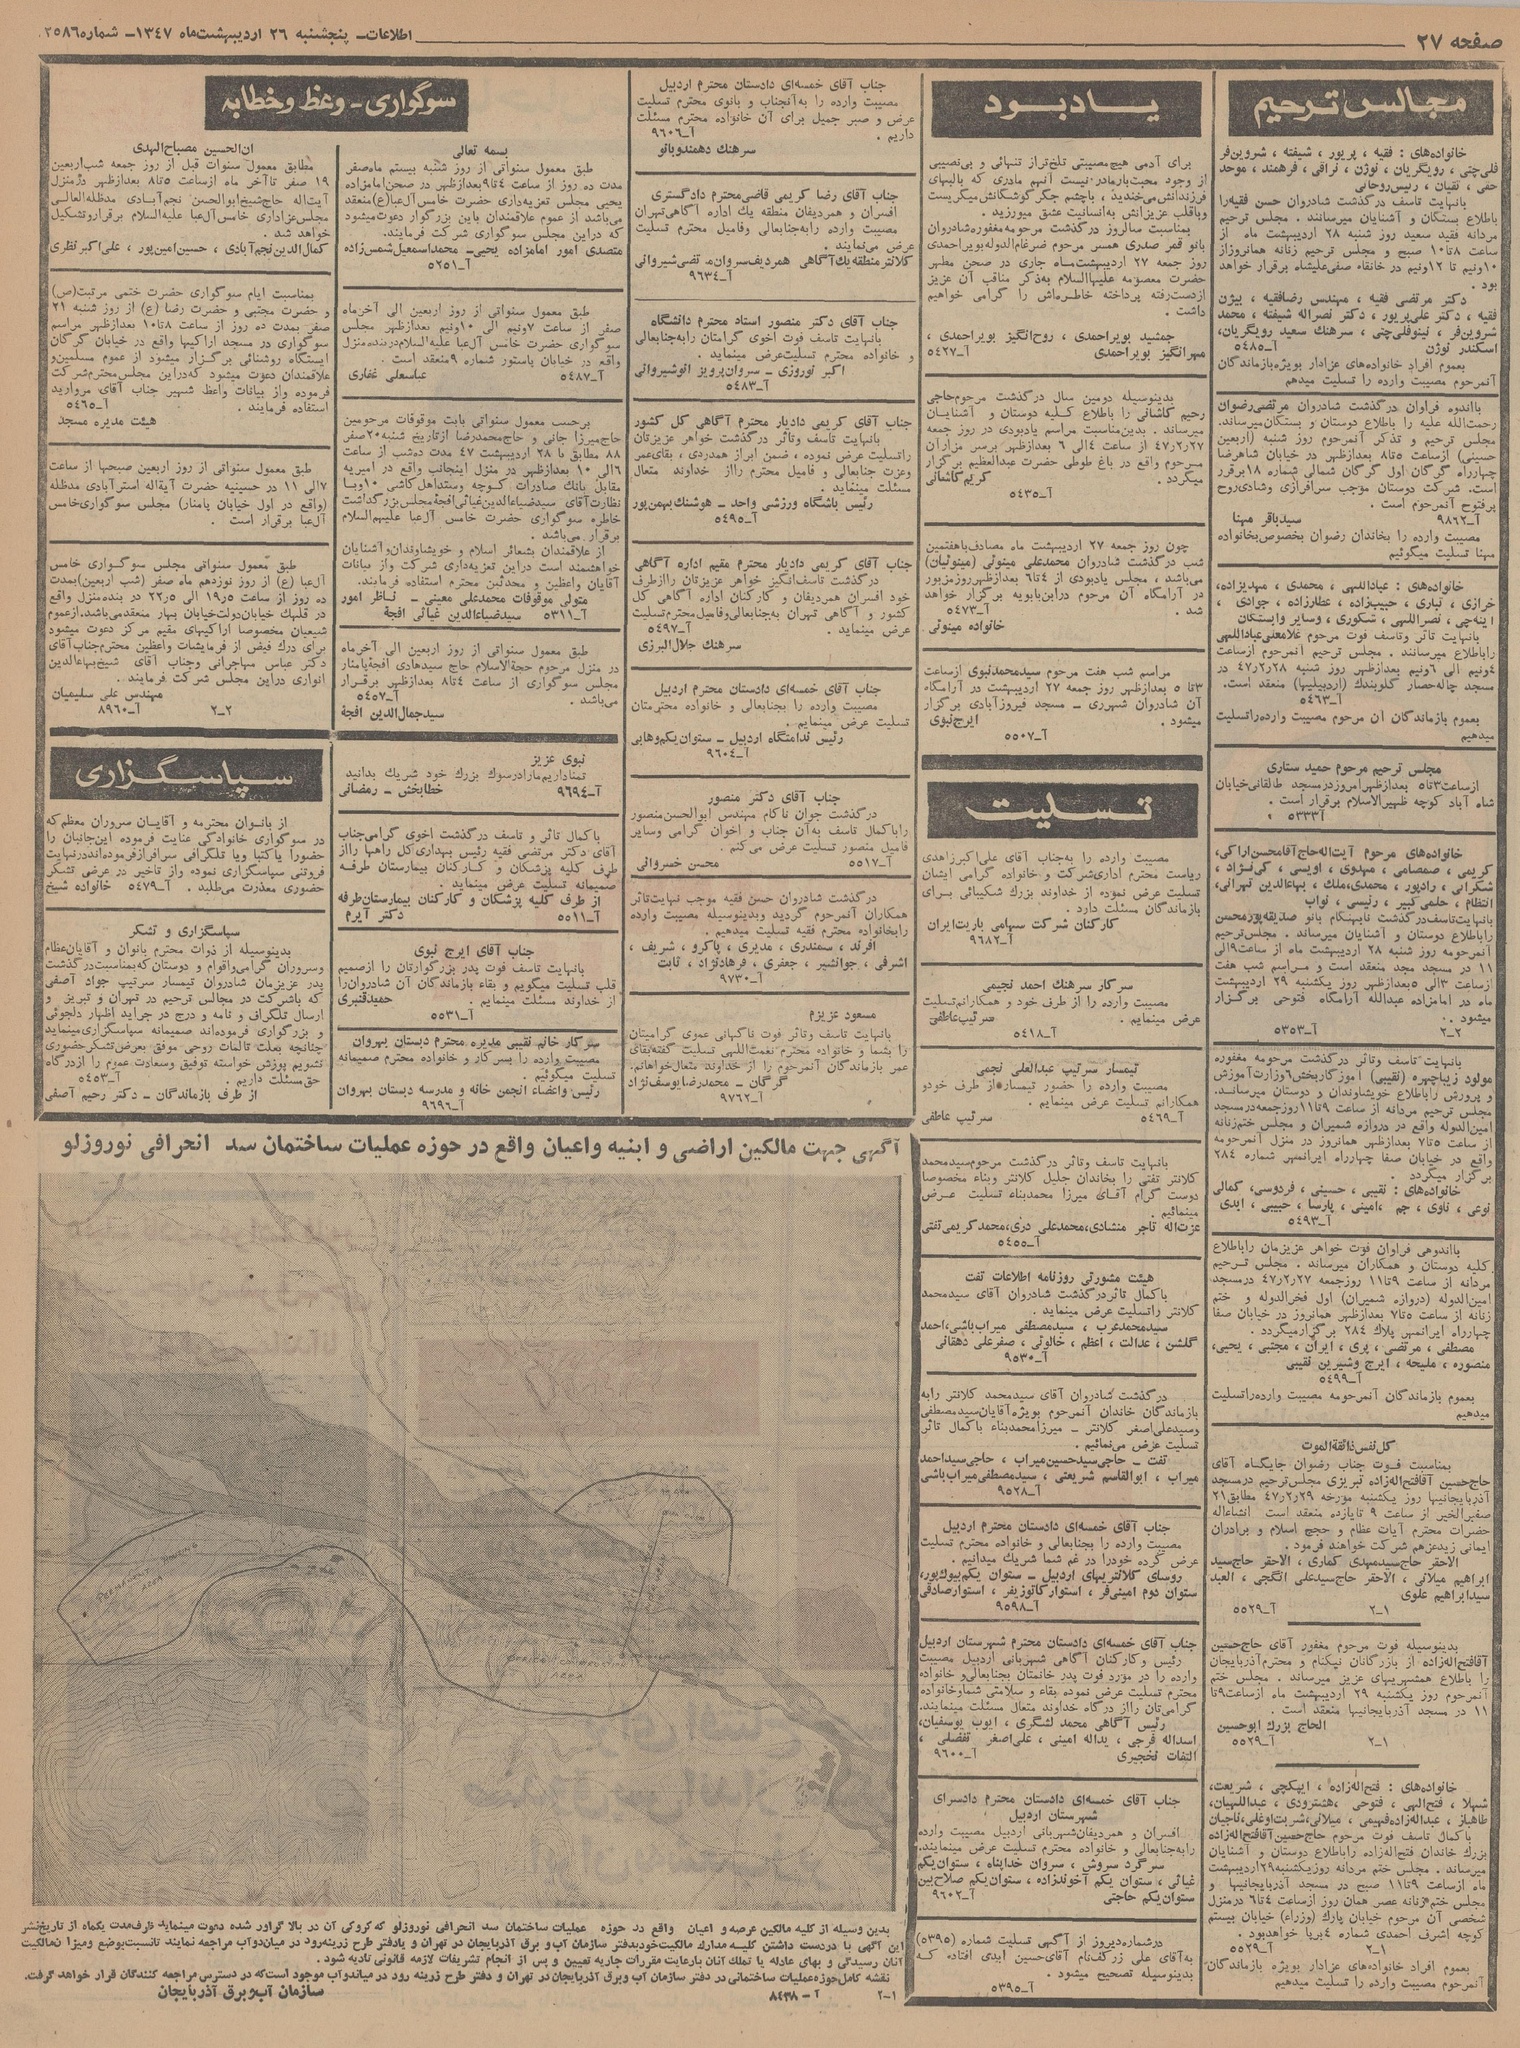 صفحه ۲۷
اطلاعات ـ پنجشنبه ۲۶ اردیبهشت ماه ۱۳۴۷ ـ شماره
مجالس ترحیم
خانواده‌های : فقیه ، پریور ، شیفته ، شروین‌فر
قلی‌چتی ، رویگریان ، نوژن ، نراقی ، فرهمند ، موحد
حقی ، تقیان ، رئیس روحانی
بانهایت تاسف درگذشت شادروان حسن فقیه را
باطلاع بستگان و آشنایان میرساند . مجلس ترحیم
مردانه فقید سعید روز شنبه ۲۸ اردیبهشت ماه از
ساعت ۸تا۱۰ صبح و مجلس ترحیم زنانه همانروز از
۱۰ونیم تا ۱۲ونیم در خانقاه صفی‌علیشاه برقرار خواهد
بود .
دکتر مرتضی فقیه ، مهندس رضا فقیه ، بیژن
فقیه ، دکتر علی پریور ، دکتر نصراله شیفته ، محمد
شروین‌فر ، نینوقلی‌چتی ، سرهنگ سعید رویگریان،
اسکندر نوژن آـ۵۴۸۵
بعموم افراد خانواده‌های عزادار بویژه بازماندگان
آنمرحوم مصیبت وارده را تسلیت میدهم
بااندوه فراوان درگذشت شادروان مرتضی رضوان
رحمت‌الله علیه را باطلاع دوستان و بستگان میرساند.
مجلس ترحیم و تذکر آنمرحوم روز شنبه (اربعین
حسینی) ازساعت ۵تا۸ بعدازظهر در خیابان شاهرضا
چهارراه گرگان اول گرگان شمالی شماره ۱۸ برقرر
است. شرکت دوستان موجب سرافرازی وشادی روح
پرفتوح آنمرحوم است .
آـ۹۸۶۲ سیدباقر مهنا
مصیبت وارده را بخاندان رضوان بخصوص بخانواده
مهنا تسلیت میگوئیم
خانواده‌های : عباداللهی ، محمدی ، مهدیزاده،
خرازی ، نیاری ، حبیب‌زاده ، عطارزاده ، جوادی ،
اینه‌چی ، نصراللهی ، شکوری ، وسایر وابستگان
بانهایت تاثر وتاسف فوت مرحوم غلامعنی عباداللهی
راباطلاع میرسانند . مجلس ترحیم آنمرحوم ازساعت
۴ونیم الی ۶ونیم بعدازظهر روز شنبه ۴۷٫۲٫۲۸ در
مسجد چاله‌حصار گلوبندک (اردبیلیها) منعقد است.
آـ۵۴۶۳
بعموم بازماندگان آن مرحوم مصیبت وارده راتسلیت
میدهیم
مجلس ترحیم مرحوم حمید ستاری
ازساعت۳تا۵ بعدازظهر امروز درمسجد طالقانی خیابان
شاه آباد کوچه ظهیرالاسلام برقرار است .
آـ۵۳۳۳
خانواده‌های مرحوم آیت‌اله حاج آقا محسن اراکی،
کریمی ، صمصامی ، مهدوی ، اویسی ، کی‌نژاد ،
شکرائی ، رادپور ، محمدی، ملک ، بهاءالدین تهرانی،
انتظام ، حلمی کبیر ، رئیسی ، نواب
بانهایت تاسف درگذشت نابهنگام بانو صدیقه پور محسن
راباطلاع دوستان و آشنایان میرساند . مجلس ترحیم
آنمرحومه روز شنبه ۲۸ اردیبهشت ماه از ساعت۹الی
۱۱ در مسجد مجد منعقد است و مراسم شب هفت
ازساعت ۳الی ۵بعدازظهر روز یکشنبه ۲۹ اردیبهشت
ماه در امامزاده عبدالله آرامگاه فتوحی برگزار
میشود .
۲ـ۲ آـ۵۳۵۳
بانهایت تاسف وتاثر درگذشت مرحومه مغفوره
مولود زیباچهره (نقیبی) آموزگار بخش۶وزارت آموزش
و پرورش راباطلاع خویشاوندان و دوستان میرساند.
مجلس ترحیم مردانه از ساعت ۹تا۱۱روزجمعه درمسجد
امین‌الدوله واقع در دروازه شمیران و مجلس ختم زنانه
از ساعت ۵تا۷ بعدازظهر همانروز در منزل آنمرحومه
واقع در خیابان صفا چهارراه ایرانمهر شماره ۲۸۴
برگزار میگردد .
خانواده‌های : نقیبی ، حسینی ، فردوسی، کمالی
نوعی ، ناوی ، جم ،امینی ، پارسا ، حبیبی ، ابدی
آـ۵۴۹۳
بااندوهی فراوان فوت خواهر عزیزمان راباطلاع
کلیه دوستان و همکاران میرساند . مجلس ترحیم
مردانه از ساعت ۹تا۱۱ روزجمعه ۴۷٫۲٫۲۷ درمسجد
امین‌الدوله (دروازه شمیران) اول فخرالدوله و ختم
زنانه از ساعت ۵تا۷ بعدازظهر همانروز در خیابان صفا
چهارراه ایرانمهر پلاک ۲۸۴ برگزارمیگردد .
مصطفی ، مرتضی ، پری ، ایران ، مجتبی ، یحیی،
منصوره ، ملیحه ، ایرج وشیرین نقیبی
آـ۵۴۹۹
بعموم بازماندگان آنمرحومه مصیبت وارده راتسلیت
میدهیم
کل نفس ذائقة الموت
بمناسبت فوت جناب رضوان جایگاه آقای
حاج‌حسین آقافتح‌اله‌زاده تبریزی مجلس ترحیم درمسجد
آذربایجانیها روز یکشنبه مورخه ۴۷٫۲٫۲۹ مطابق۲۱
صفرالخیر از ساعت ۹ تایازده منعقد است انشاءاله
حضرات محترم آیات عظام و حجج اسلام و برادران
ایمانی زیدعزهم شرکت خواهند فرمود .
الاحقر حاج سیدمهدی کماری ، الاحقر حاج سید
ابراهیم میلانی ، الاحقر حاج سیدعلی انگجی ، العبد
سیدابراهیم علوی
۲ـ۱ آـ۵۵۲۹
بدینوسیله فوت مرحوم مغفور آقای حاج حسین
آقافتح‌اله‌زاده از بازرگانان نیکنام و محترم آذربایجان
را باطلاع همشهریهای عزیز میرساند . مجلس ختم
آنمرحوم روز یکشنبه ۲۹ اردیبهشت ماه ازساعت ۹تا
۱۱ در مسجد آذربایجانیها منعقد است .
الحاج بزرک ابوحسین
۲ـ۱ آـ۵۵۲۹
خانواده‌های : فتح‌اله‌زاده ، ایپکچی ، شریعت،
شهلا ، فتح‌الهی ، فتوحی ،هشترودی ، عبداللهیان،
طاهباز ، عبداله‌زاده فهیمی ، میلانی ،شربت‌اوغلی، ناجیان
باکمال تاسف فوت مرحوم حاج حسین آقافتح‌اله‌زاده
بزرک خاندان فتح‌اله‌زاده راباطلاع دوستان و آشنایان
میرساند . مجلس ختم مردانه روز یکشنبه۲۹اردیبهشت
ماه ازساعت ۹تا۱۱ صبح در مسجد آذربایجانیها و
مجلس ختم زنانه عصر همان روز ازساعت ۴تا۶ درمنزل
شخصی آن مرحوم خیابان پارک (وزراء) خیابان بیستم
کوچه اشرف احمدی شماره ۴ برپا خواهدبود .
۲ـ۱ آـ۵۵۲۹
بعموم افراد خانواده‌های عزادار بویژه بازماندگان
آنمرحوم مصیبت وارده را تسلیت میدهیم
یادبود
برای آدمی هیچ مصیبتی تلخ‌تر از تنهائی و بی‌نصیبی
از وجود محبت‌بار مادر نیست آنهم مادری که بالبهای
فرزندانش می‌خندید ، باچشم جگرگوشگانش میگریست
وباقلب عزیزانش به‌انسانیت عشق میورزید .
بمناسبت سالروز درگذشت مرحومه مغفوره شادروان
بانو قمر صدری همسر مرحوم ضرغام‌الدوله بویراحمدی
روز جمعه ۲۷ اردیبهشت ماه جاری در صحن مطهر
حضرت معصومه علیهاالسلام به‌ذکر مناقب آن عزیز
ازدست‌رفته پرداخته خاطره‌اش را گرامی خواهیم
داشت .
جمشید بویراحمدی ، روح‌انگیز بویراحمدی ،
مهرانگیز بویراحمدی آـ۵۴۲۷
بدینوسیله دومین سال درگذشت مرحوم حاجی
رحیم کاشانی را باطلاع کلیه دوستان و آشنایان
میرساند . بدین‌مناسبت مراسم یادبودی در روز جمعه
۴۷٫۲٫۲۷ از ساعت ۴الی ۶ بعدازظهر برسر مزار آن
مرحوم واقع در باغ طوطی حضرت عبدالعظیم برگزار
میگردد . کریم کاشانی
آـ۵۴۳۵
چون روز جمعه ۲۷ اردیبهشت ماه مصادف باهفتمین
شب درگذشت شادروان محمدعلی مینوئی (مینوئیان)
می‌باشد ، مجلس یادبودی از ۴تا۶ بعدازظهر روز مزبور
در آرامگاه آن مرحوم درابن‌بابویه برگزار خواهد
شد . آـ۵۴۷۳
خانواده مینوئی
مراسم شب هفت مرحوم سیدمحمد نبوی ازساعت
۳تا ۵ بعدازظهر روز جمعه ۲۷ اردیبهشت در آرامگاه
آن شادروان شهرری ـ مسجد فیروزآبادی برگزار
میشود . ایرج نبوی
آـ۵۵۰۷
تسلیت
مصیبت وارده را به‌جناب آقای علی‌اکبر زاهدی
ریاست محترم اداری شرکت و خانواده گرامی ایشان
تسلیت عرض نموده از خداوند بزرک شکیبائی برای
بازماندگان مسئلت دارد .
کارکنان شرکت سهامی باریت ایران
آـ۹۶۸۲
سرکار سرهنک احمد نجیمی
مصیبت وارده را از طرف خود و همکارانم تسلیت
عرض مینمایم . سرتیپ عاطفی
آـ۵۴۱۸
تیمسار سرتیپ عبدالعلی نجمی
مصیبت وارده را حضور تیمسار از طرف خودو
همکارانم تسلیت عرض مینمایم .
آـ۵۴۶۹ سرتیپ عاطفی
بانهایت تاسف وتاثر درگذشت مرحوم سیدمحمد
کلانتر تفتی را بخاندان جلیل کلانتر وبناء مخصوصا
دوست گرام آقای میرزا محمدبناء تسلیت عرض
مینمائیم .
عزت‌اله تاجر منشادی،محمدعلی دری،محمد کریمی تفتی
آـ۵۴۵۵
هیئت مشورتی روزنامه اطلاعات تفت
باکمال تاثر درگذشت شادروان آقای سیدمحمد
کلانتر راتسلیت عرض مینماید .
سیدمحمدعرب ، سیدمصطفی میراب‌باشی،احمد
گلشن ، عدالت ، اعظم ، خالوئی ، صفرعلی دهقانی
آـ۹۵۳۰
درگذشت شادروان آقای سیدمحمد کلانتر رابه
بازماندگان خاندان آنمرحوم بویژه آقایان سیدمصطفی
وسیدعلی‌اصغر کلانتر ـ میرزامحمدبناء باکمال تاثر
تسلیت عرض می‌نمائیم .
تفت ـ حاجی سیدحسین میراب ، حاجی سیداحمد
میراب ، ابوالقاسم شریعتی ، سیدمصطفی میراب‌باشی
آـ۹۵۲۸
جناب آقای خمسه‌ای دادستان محترم اردبیل
مصیبت وارده را بجنابعالی و خانواده محترم تسلیت
عرض کرده خودرا در غم شما شریک میدانیم .
روسای کلانتریهای اردبیل ـ ستوان یکم بیوک‌پور،
ستوان دوم امینی‌فر ، استوار کانوز بفر ، استوار صادقی
آـ۹۵۹۸
جناب آقای خمسه‌ای دادستان محترم شهرستان اردبیل
رئیس وکارکنان آگاهی شهربانی اردبیل مصیبت
وارده را در مورد فوت پدر خانمتان بجنابعالی و خانواده
محترم تسلیت عرض نموده بقاء و سلامتی شماو خانواده
گرامی‌تان رااز درگاه خداوند متعال مسئلت مینمایند.
رئیس آگاهی محمد لشگری ، ایوب یوسفیان،
اسداله فرجی ، یداله امینی ، علی‌اصغر تفضلی ،
التفات نخجیری آـ۹۶۰۰
جناب آقای خمسه‌ای دادستان محترم دادسرای
شهرستان اردبیل
افسران و همردیفان شهربانی اردبیل مصیبت وارده
رابه‌جنابعالی و خانواده محترم تسلیت عرض مینمایند.
سرگرد سروش ، سروان خداپناه ، ستوان یکم
غیاثی ، ستوان یکم آخوندزاده ، ستوان یکم صلاح‌بین
ستوان یکم حاجتی آـ۹۶۰۲
درشماره دیروز از آگهی تسلیت شماره (۵۳۹۵)
به‌آقای علی زرکف نام آقای حسین ایدی افتاده که
بدینوسیله تصحیح میشود .
آـ۵۳۹۵
جناب آقای خمسه‌ای دادستان محترم اردبیل
مصیبت وارده را به‌آنجناب و بانوی محترم تسلیت
عرض و صبر جمیل برای آن خانواده محترم مسئلت
داریم . آـ۹۶۰۶
سرهنک دهمند و بانو
جناب آقای رضا کریمی قاضی محترم دادگستری
افسران و همردیفان منطقه یک اداره آگاهی تهران
مصیبت وارده رابه‌جنابعالی وفامیل محترم تسلیت
عرض می‌نمایند .
کلانتر منطقه یک آگاهی همردیف سروان مرتضی شیروانی
آـ۹۶۳۴
جناب آقای دکتر منصور استاد محترم دانشگاه
بانهایت تاسف فوت اخوی گرامتان رابه‌جنابعالی
و خانواده محترم تسلیت عرض مینماید .
اکبر نوروزی ـ سروان پرویز انوشیروانی
آـ۵۴۸۳
جناب آقای کریمی دادیار محترم آگاهی کل کشور
بانهایت تاسف وتاثر درگذشت خواهر عزیزتان
راتسلیت عرض نموده ، ضمن ابراز همدردی ، بقای عمر
وعزت جنابعالی و فامیل محترم رااز خداوند متعال
مسئلت مینماید .
رئیس باشگاه ورزشی واحد ـ هوشنک بهمن‌پور
آـ۵۴۹۵
جناب آقای کریمی دادیار محترم مقیم اداره آگاهی
درگذشت تاسف‌انگیز خواهر عزیزتان رااز طرف
خود افسران همردیفان و کارکنان اداره آگاهی کل
کشور و آگاهی تهران به‌جنابعالی وفامیل محترم تسلیت
عرض مینماید . آـ۵۴۹۷
سرهنک جلال البرزی
جناب آقای خمسه‌ای دادستان محترم اردبیل
مصیبت وارده را بجنابعالی و خانواده محترمتان
تسلیت عرض مینمایم .
رئیس ندامتگاه اردبیل ـ ستوان یکم وهابی
آـ۹۶۰۴
جناب آقای دکتر منصور
درگذشت جوان ناکام مهندس ابوالحسن منصور
راباکمال تاسف به‌آن جناب و اخوان گرامی وسایر
فامیل منصور تسلیت عرض می‌کنم .
آـ۵۵۱۷ محسن خسروانی
درگذشت شادروان حسن فقیه موجب نهایت تاثر
همکاران آنمرحوم گردید وبدینوسیله مصیبت وارده
رابخانواده محترم فقیه تسلیت میدهیم .
آفرند ، سمندری ، مدیری ، پاکرو ، شریف ،
اشرفی ، جوانشیر ، جعفری ، فرهادنژاد ، ثابت
آـ۹۷۳۰
مسعود عزیزم
بانهایت تاسف وتاثر فوت ناگهانی عموی گرامیتان
را بشما و خانواده محترم نعمت‌اللهی تسلیت گفته بقای
عمر بازماندگان آنمرحوم را از خداوند متعال خواهانم.
گرگان ـ محمدرضا یوسف‌نژاد
آـ۹۷۶۲
سوگواری ـ وعظ و خطابه
بسمه تعالی
طبق معمول سنواتی از روز شنبه بیستم ماه صفر
مدت ده روز از ساعت ۴تا۹بعدازظهر در صحن امامزاده
یحیی مجلس تعزیه‌داری حضرت خامس آل‌عبا(ع)منعقد
می‌باشد از عموم علاقمندان باین بزرگوار دعوت میشود
که دراین مجلس سوگواری شرکت فرمایند.
متصدی امور امامزاده یحیی ـ محمداسمعیل شمس‌زاده
آـ۵۲۵۱
طبق معمول سنواتی از روز اربعین الی آخر ماه
صفر از ساعت ۷ونیم الی ۱۰ونیم بعدازظهر مجلس
سوگواری حضرت خامس آل‌عبا علیه‌السلام دربنده منزل
واقع در خیابان پاستور شماره ۹منعقد است .
آـ۵۴۸۷ عباسعلی غفاری
برحسب معمول سنواتی بابت موقوفات مرحومین
حاج میرزا جانی و حاج محمدرضا ازتاریخ شنبه۲۰صفر
۸۸ مطابق با ۲۸ اردیبهشت ۴۷ مدت ده شب از ساعت
۶الی ۱۰ بعدازظهر در منزل اینجانب واقع در امیریه
مقابل بانک صادرات کوچه
نظارت آقای سیدضیاءالدین غیاثی افجۀ مجلس بزرگداشت
خاطره سوگواری حضرت خامس آل‌عبا علیهم‌السلام
برقرار می‌باشد .
از علاقمندان بشعائر اسلام و خویشاوندان و آشنایان
خواهشمند است دراین تعزیه‌داری شرکت واز بیانات
آقایان واعظین و محدثین محترم استفاده فرمایند.
متولی موقوفات محمدعلی معینی ـ ناظر امور
آـ۵۳۱۱ سیدضیاءالدین غیاثی افجة
طبق معمول سنواتی از روز اربعین الی آخر ماه
در منزل مرحوم حجةالاسلام حاج سیدهادی افجۀ پامنار
مجلس سوگواری از ساعت ۴تا۸ بعدازظهر برقرار
می‌باشد . آـ۵۴۵۷
سیدجمال‌الدین افجة
نبوی عزیز
تمنا داریم مارا درسوک بزرک خود شریک بدانید
آـ۹۶۹۴ خطابخش ـ رمضانی
باکمال تاثر و تاسف درگذشت اخوی گرامی جناب
آقای دکتر مرتضی فقیه رئیس بهداری کل راهها رااز
طرف کلیه پزشکان و کارکنان بیمارستان طرفه
صمیمانه تسلیت عرض مینماید .
از طرف کلیه پزشکان و کارکنان بیمارستان طرفه
آـ۵۵۱۱ دکتر آیرم
جناب آقای ایرج نبوی
بانهایت تاسف فوت پدر بزرگوارتان را ازصمیم
قلب تسلیت میگویم و بقاء بازماندگان آن شادروان را
از خداوند مسئلت مینمایم . حمید قنبری
آـ۵۵۳۱
سرکار خانم نقیبی مدیره محترم دبستان بهروان
مصیبت وارده را بسرکار و خانواده محترم صمیمانه
تسلیت میگوئیم .
رئیس واعضاء انجمن خانه و مدرسه دبستان بهروان
آـ۹۶۹۶
ان الحسین مصباح الهدی
مطابق معمول سنوات قبل از روز جمعه شب اربعین
۱۹ صفر تاآخر ماه ازساعت ۵تا۸ بعدازظهر در منزل
آیت‌اله حاج شیخ ابوالحسن نجم‌آبادی مدظله‌العالی
مجلس عزاداری خامس آل‌عبا علیه‌السلام برقرار و تشکیل
خواهد شد .
کمال‌الدین نجم‌آبادی ، حسین امین‌پور ، علی‌اکبر نظری
بمناسبت ایام سوگواری حضرت ختمی مرتبت(ص)
و حضرت مجتبی و حضرت رضا (ع) از روز شنبه ۲۱
صفر بمدت ده روز از ساعت ۸تا۱۰ بعدازظهر مراسم
سوگواری در مسجد اراکیها واقع در خیابان گرگان
ایستگاه روشنائی برگزار میشود از عموم مسلمین و
علاقمندان دعوت میشود که دراین مجلس محترم شرکت
فرموده واز بیانات واعظ شهیر جناب آقای مروارید
استفاده فرمایند . آـ۵۴۶۵
هیئت مدیره مسجد
طبق معمول سنواتی از روز اربعین صبحها از ساعت
۷الی ۱۱ در حسینیه حضرت آیةاله استرآبادی مدظله
(واقع در اول خیابان پامنار) مجلس سوگواری خامس
آل‌عبا برقرار است .
طبق معمول سنواتی مجلس سوگواری خامس
آل‌عبا (ع) از روز نوزدهم ماه صفر (شب اربعین)بمدت
ده روز از ساعت ۱۹٫۵ الی ۲۲٫۵ در بنده منزل واقع
در قلهک خیابان دولت خیابان بهار منعقد می‌باشد. ازعموم
شیعیان مخصوصا اراکیهای مقیم مرکز دعوت میشود
برای درک فیض از فرمایشات واعظین محترم جناب آقای
دکتر عباس مهاجرانی وجناب آقای شیخ بهاءالدین
انواری دراین مجلس شرکت فرمایند .
مهندس علی سلیمیان
۲ـ۲ آـ۸۹۶۰
سپاسگزاری
از بانوان محترمه و آقایان سروران معظم که
در سوگواری خانوادگی عنایت فرموده این‌جانبان را
حضورا یاکتبا ویا تلگرافی سرافراز فرموده‌اند درنهایت
فروتنی سپاسگزاری نموده واز تاخیر در عرض تشکر
حضوری معذرت می‌طلبد . آـ۵۴۷۹ خانواده شیخ
سپاسگزاری و تشکر
بدینوسیله از ذوات محترم بانوان و آقایان عظام
وسروران گرامی واقوام و دوستان که بمناسبت درگذشت
پدر عزیزمان شادروان تیمسار سرتیپ جواد آصفی
که باشرکت در مجالس ترحیم در تهران و تبریز و
ارسال تلگراف و نامه و درج در جراید اظهار دلجوئی
و بزرگواری فرموده‌اند صمیمانه سپاسگزاری مینماید
چنانچه بعلت تالمات روحی موفق بعرض تشکر حضوری
نشویم پوزش خواسته توفیق وسعادت عموم را از درگاه
حق مسئلت داریم . آـ۵۴۵۳
از طرف بازماندگان ـ دکتر رحیم آصفی
آگهی جهت مالکین اراضی و ابنیه واعیان واقع در حوزه عملیات ساختمان سد انحرافی نوروزلو
PERMANENT CAMP
AREA
AREA
بدین وسیله از کلیه مالکین عرصه و اعیان واقع رد حوزه عملیات ساختمان سد انحرافی نوروزلو که کروکی آن در بالا گراور شده دعوت مینماید ظرف مدت یکماه از تاریخ نشر
این آگهی با دردست داشتن کلیه مدارک مالکیت خود بدفتر سازمان آب و برق آذربایجان در تهران و یا دفتر طرح زرینه‌رود در میاندوآب مراجعه نمایند تا نسبت بوضع ومیزان مالکیت
آنان رسیدگی و بهای عادله یا تملک آنان بارعایت مقررات جاریه تعیین و پس از انجام تشریفات لازمه قانونی تادیه شود .
نقشه کامل حوزه عملیات ساختمانی در دفتر سازمان آب وبرق آذربایجان در تهران و دفتر طرح زرینه رود در میاندوآب موجود است که در دسترس مراجعه کنندگان قرار خواهد گرفت.
۲ـ۱ آ ـ ۸۴۳۸ سازمان آب و برق آذربایجان